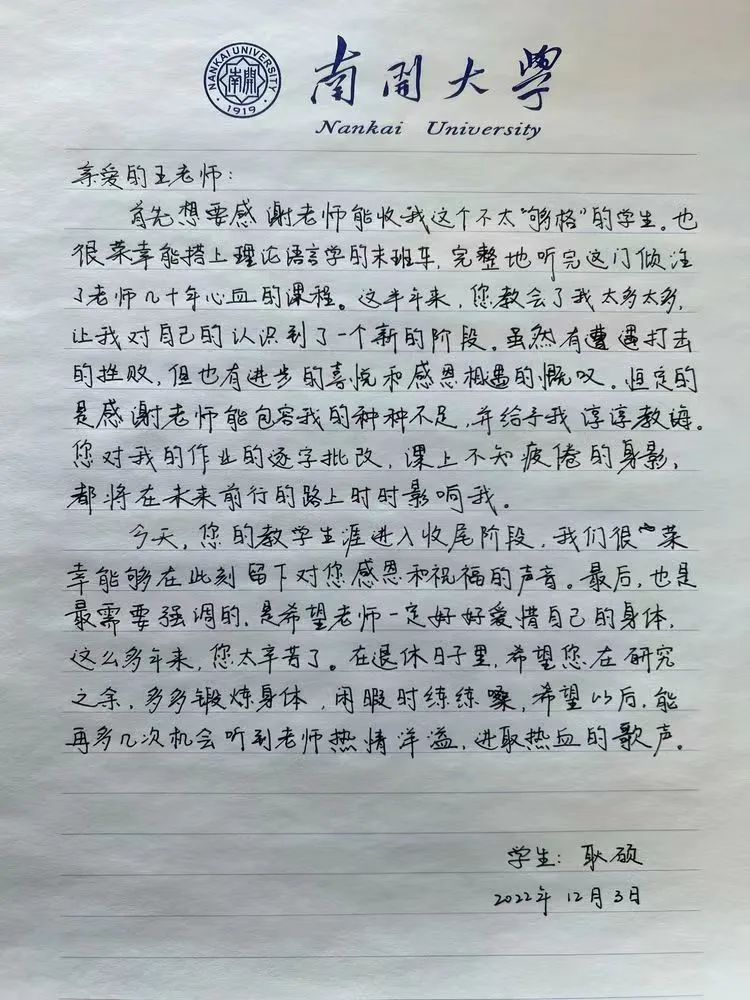 NANKAI UNIVERSITY
南開
1919
南開大學
Nankai University
亲爱的王老师：
首先想要感谢老师能收我这个不太“够格”的学生。也
很荣幸能搭上理论语言学的末班车，完整地听完这门倾注
了老师几十年心血的课程。这半年来，您教会了我太多太多，
让我对自己的认识到了一个新的阶段。虽然有遭遇打击
的挫败，但也有进步的喜悦和感恩相遇的慨叹。恒定的
是感谢老师能包容我的种种不足，并给予我谆谆教诲。
您对我的作业的逐字批改，课上不知疲倦的身影，
都将在未来前行的路上时时影响我。
今天，您的教学生涯进入收尾阶段，我们很荣
幸能够在此刻留下对您感恩和祝福的声音。最后，也是
最需要强调的，是希望老师一定好好爱惜自己的身体，
这么多年来，您太辛苦了。在退休日子里，希望您在研究
之余，多多锻炼身体，闲暇时练练嗓，希望以后，能
再多几次机会听到老师热情洋溢，进取热血的歌声。
学生：耿硕
2022年12月3日